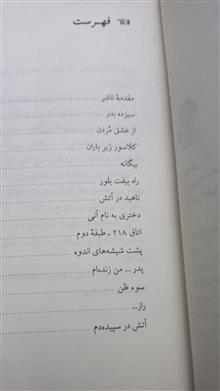 فهرست
مقدمهٔ ناشر
سیزده بدر
از عشق مُردن
کلاسور زیر باران
بیگانه
راه بیفت بلور
ناهید در آتش
دختری به نام آنی
اتاق ۲۱۸ ـ طبقهٔ دوم
پشت شیشه‌های اندوه
پدر ... من زنده‌ام
سوء ظن
راز...
آتش در سپیده‌دم